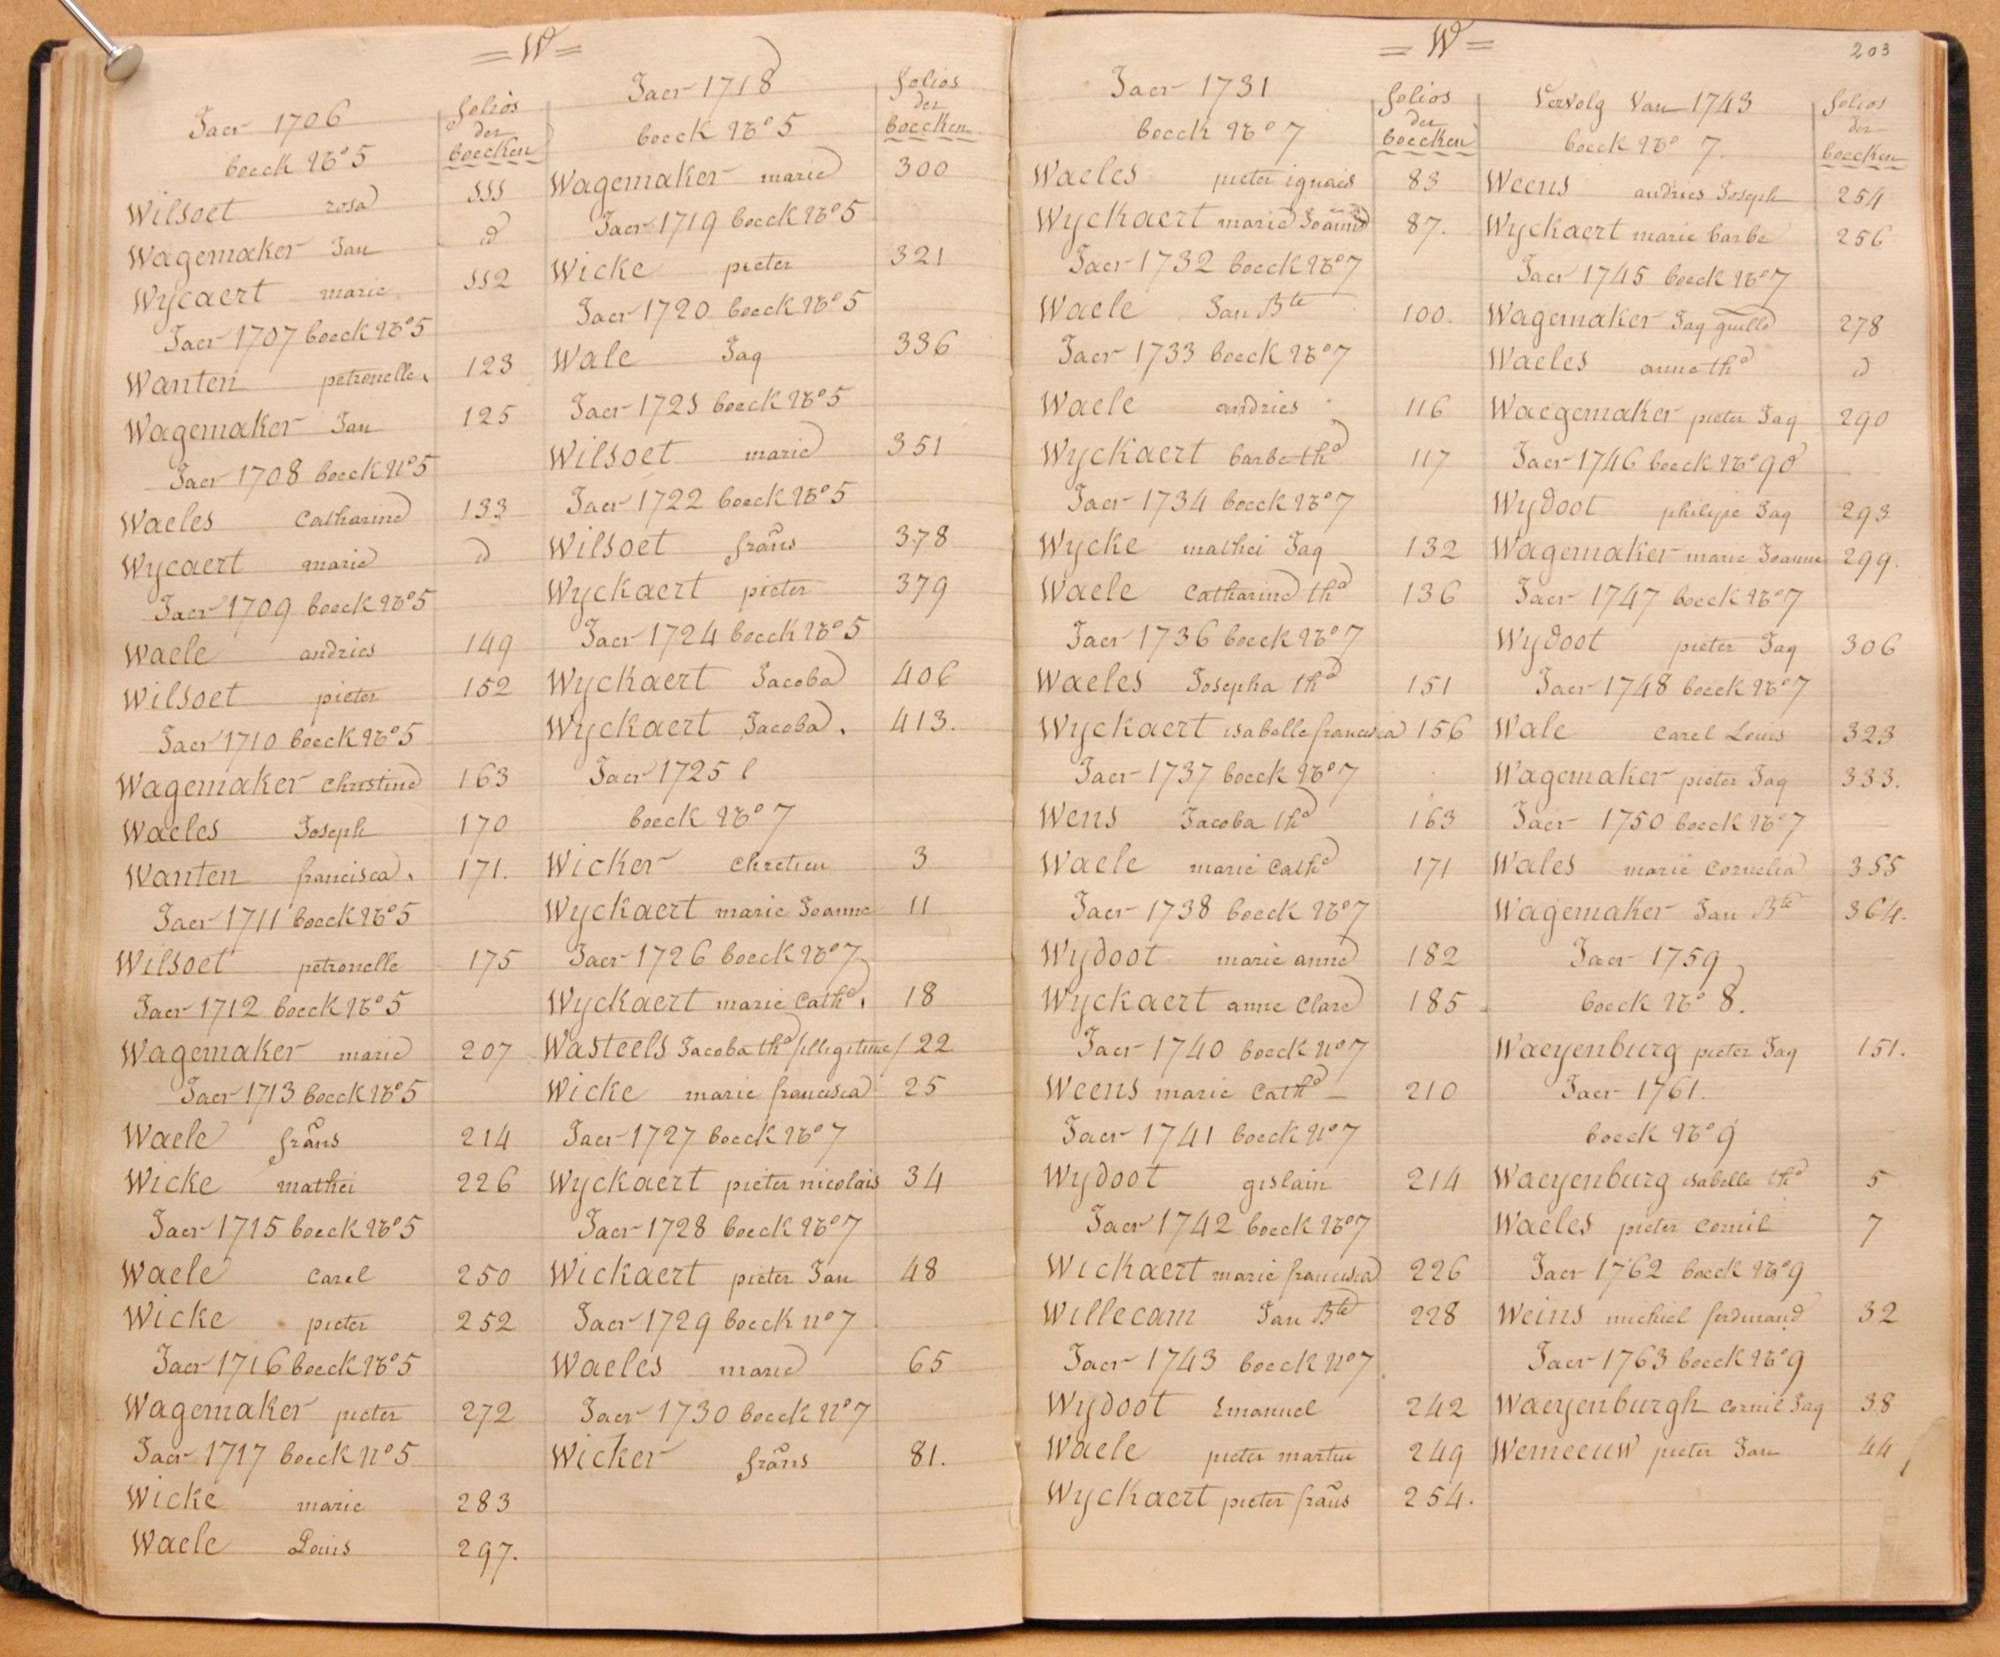 = W =
Jaer 1706
boeck No 5
folios
der
boecken
Wilsoet rosa 111
Wagemaker Jan d
Wycaert marie 112
Jaer 1707 boeck No 5
Wanten petronelle. 123
Wagemaker Jan 125
Jaer 1708 boeck No 5
Waeles Catharine 133
Wycaert marie d
Jaer 1709 boeck No 5
Waele andries 149
Wilsoet pieter 152
Jaer 1710 boeck No 5
Wagemaker Christine 163
Waeles Joseph 170
Wanten francisca. 171.
Jaer 1711 boeck No 5
Wilsoet petronelle 175
Jaer 1712 boeck No 5
Wagemaker marie 207
Jaer 1713 boeck No 5
Waele frans 214
Wicke mathei 226
Jaer 1715 boeck No 5
Waele Carel 250
Wicke pieter 252
Jaer 1716 boeck No 5
Wagemaker pieter 272
Jaer 1717 boeck No 5
Wicke marie 283
Waele Louis 297.
Jaer 1718
boeck No 5
folios
der
boecken
Wagemaker marie 300
Jaer 1719 boeck No 5
Wicke pieter 321
Jaer 1720 boeck No 5
Wale Jaq 336
Jaer 1721 boeck No 5
Wilsoet marie 351
Jaer 1722 boeck No 5
Wilsoet frans 378
Wyckaert pieter 379
Jaer 1724 boeck No 5
Wyckaert Jacoba 406
Wyckaert Jacoba. 413.
Jaer 1725
boeck No 7
Wicker Chretien 3
Wyckaert marie Joanne 11
Jaer 1726 boeck No 7
Wyckaert marie Cathe. 18
Wasteels Jacoba the /illegitime/ 22
Wicke marie francisca 25
Jaer 1727 boeck No 7
Wyckaert pieter nicolais 34
Jaer 1728 boeck No 7
Wickaert pieter Jan 48
Jaer 1729 boeck No 7
Waeles marie 65
Jaer 1730 boeck No 7
Wicker frans 81.
= W =
203
Jaer 1731
boeck No 7
folios
der
boecken
Waeles pieter ignais 83
Wyckaert marie Joanne 87.
Jaer 1732 boeck No 7
Waele Jan Bte 100.
Jaer 1733 boeck No 7
Waele andries 116
Wyckaert barbe the 117
Jaer 1734 boeck No 7
Wycke mathei Jaq 132
Waele Catharine the 136
Jaer 1736 boeck No 7
Waeles Josepha the 151
Wyckaert isabelle francisca 156
Jaer 1737 boeck No 7
Wens Jacoba the 163
Waele marie Cathe 171
Jaer 1738 boeck No 7
Wydoot marie anne 182
Wyckaert anne Clare 185
Jaer 1740 boeck No 7
Weens marie Cathe 210
Jaer 1741 boeck No 7
Wydoot gislain 214
Jaer 1742 boeck No 7
Wickaert marie francisca 226
Willecam Jan Bte 228
Jaer 1743 boeck No 7
Wydoot Emanuel 242
Waele pieter martin 249
Wyckaert pieter frans 254.
Vervolg Van 1743
boeck No 7.
folios
der
boecken
Weens andries Joseph 254
Wyckaert marie barbe 256
Jaer 1745 boeck No 7
Wagemaker Jaq guille 278
Waeles anne the d
Waegemaker pieter Jaq 290
Jaer 1746 boeck No
Wydoot philipe Jaq 293
Wagemaker marie Joanne 299.
Jaer 1747 boeck No 7
Wydoot pieter Jaq 306
Jaer 1748 boeck No 7
Wale Carel Louis 323
Wagemaker pieter Jaq 333.
Jaer 1750 boeck No 7
Wales marie Cornelia 355
Wagemaker Jan Bte 364.
Jaer 1759
boeck No 8.
Waeyenburg pieter Jaq 151.
Jaer 1761.
boeck No 9
Waeyenburg isabelle the 5
Waeles pieter Cornil 7
Jaer 1762 boeck No 9
Weins michiel ferdinand 32
Jaer 1763 boeck No 9
Waeyenburgh Cornil Jaq 38
Wemeeuw pieter Jan 44